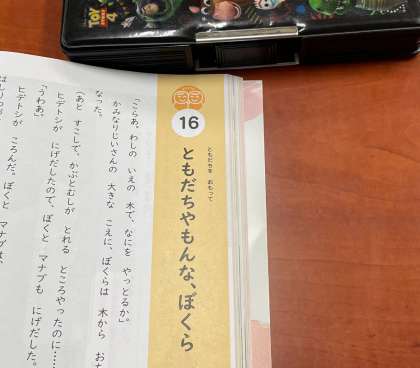 TOY
STORY
4
16
ともだちを おもって
ともだちやもんな、ぼくら
「こらあ、わしの いえの 木で、なにを やっとるか。」
かみなりじいさんの 大きな こえに、ぼくらは 木から お
なった。
(あと すこしで、かぶとむしが とれる ところやったのに……
ヒデトシが にげだしたので、ぼくと マナブも にげだした。
「うわあ。」
ヒデトシが ころんだ。ぼくと マナブは、